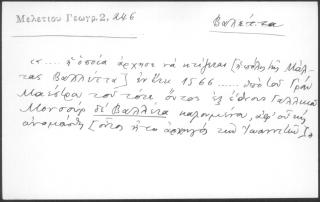 Μελετίου Γεωγρ. 2, 246
Βαλέττα
«... ἡ ὁποία ἄρχησε νὰ κτίζεται [ἡ πόλη τῆς Μάλ-
τας Βαλλέττα] ἐν ἔτει 1566 ...... ὑπὸ τοῦ Γράν
Μαΐστρου τοῦ τότε ὄντος ἐξ ἔθνους Γαλλικοῦ
Μονσιούρ δὲ Βαλλέτα καλουμένου, ἀφ' οὗ τῆς
ὀνομάσθη [οὗτος ἦτο ἀρχηγὸς τῶν Ἰωαννιτῶν]».